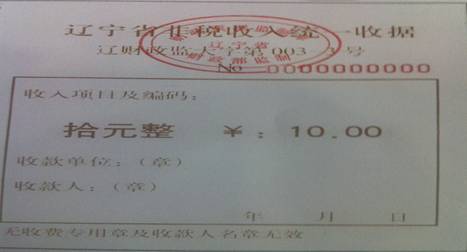 辽宁省非税收入统一收据
辽财政监大字第003-3号
辽宁省
财政部监制
No 0000000000
收入项目及编码：
拾元整 ￥：10.00
收款单位：（章）
收款人：（章）
年 月 日
无收费专用章及收款人名章无效